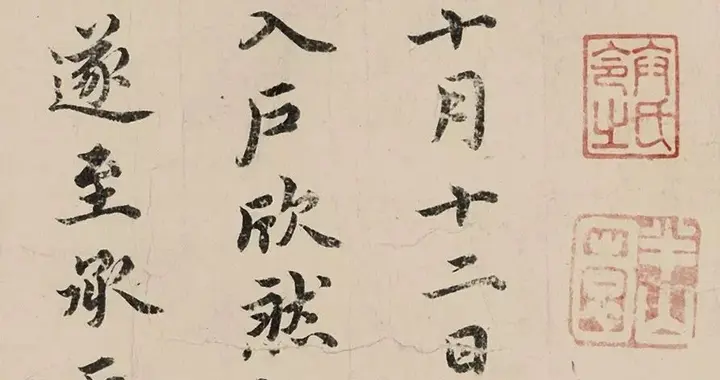 十月十二日
入戶欣然
遂至承